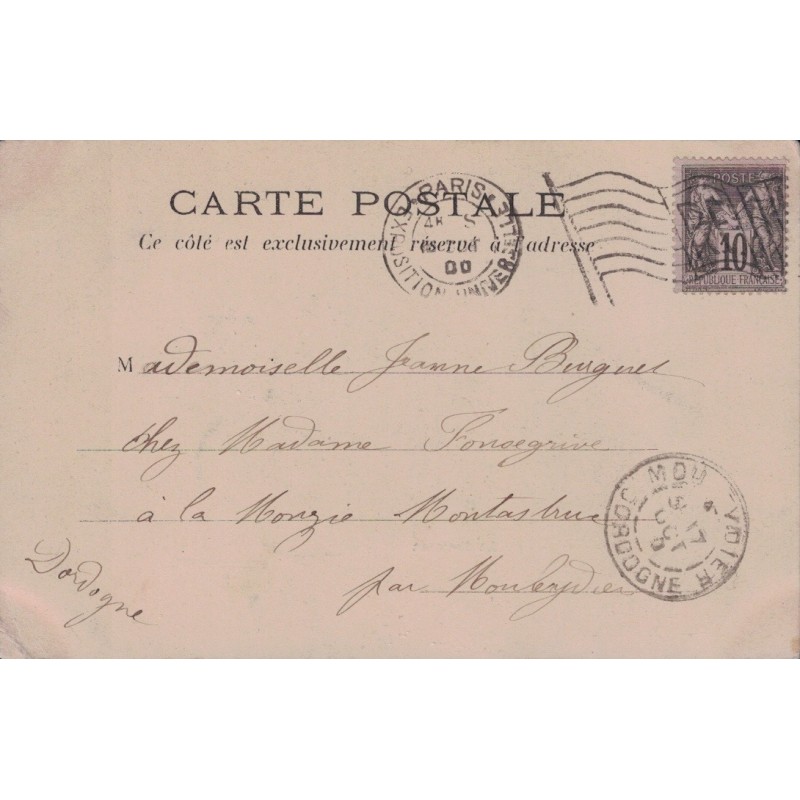 CARTE POSTALE
Ce côté est exclusivement réservé à l'adresse
PARIS EXPOSITION UNIVERSELLE
00
POSTE
10
RÉPUBLIQUE FRANÇAISE
Mademoiselle Jeanne Burguet
chez Madame Fonsegrive
à la Monzie Montastruc
par Mouleydier
Dordogne
MOULEYDIER
DORDOGNE
17
OCT